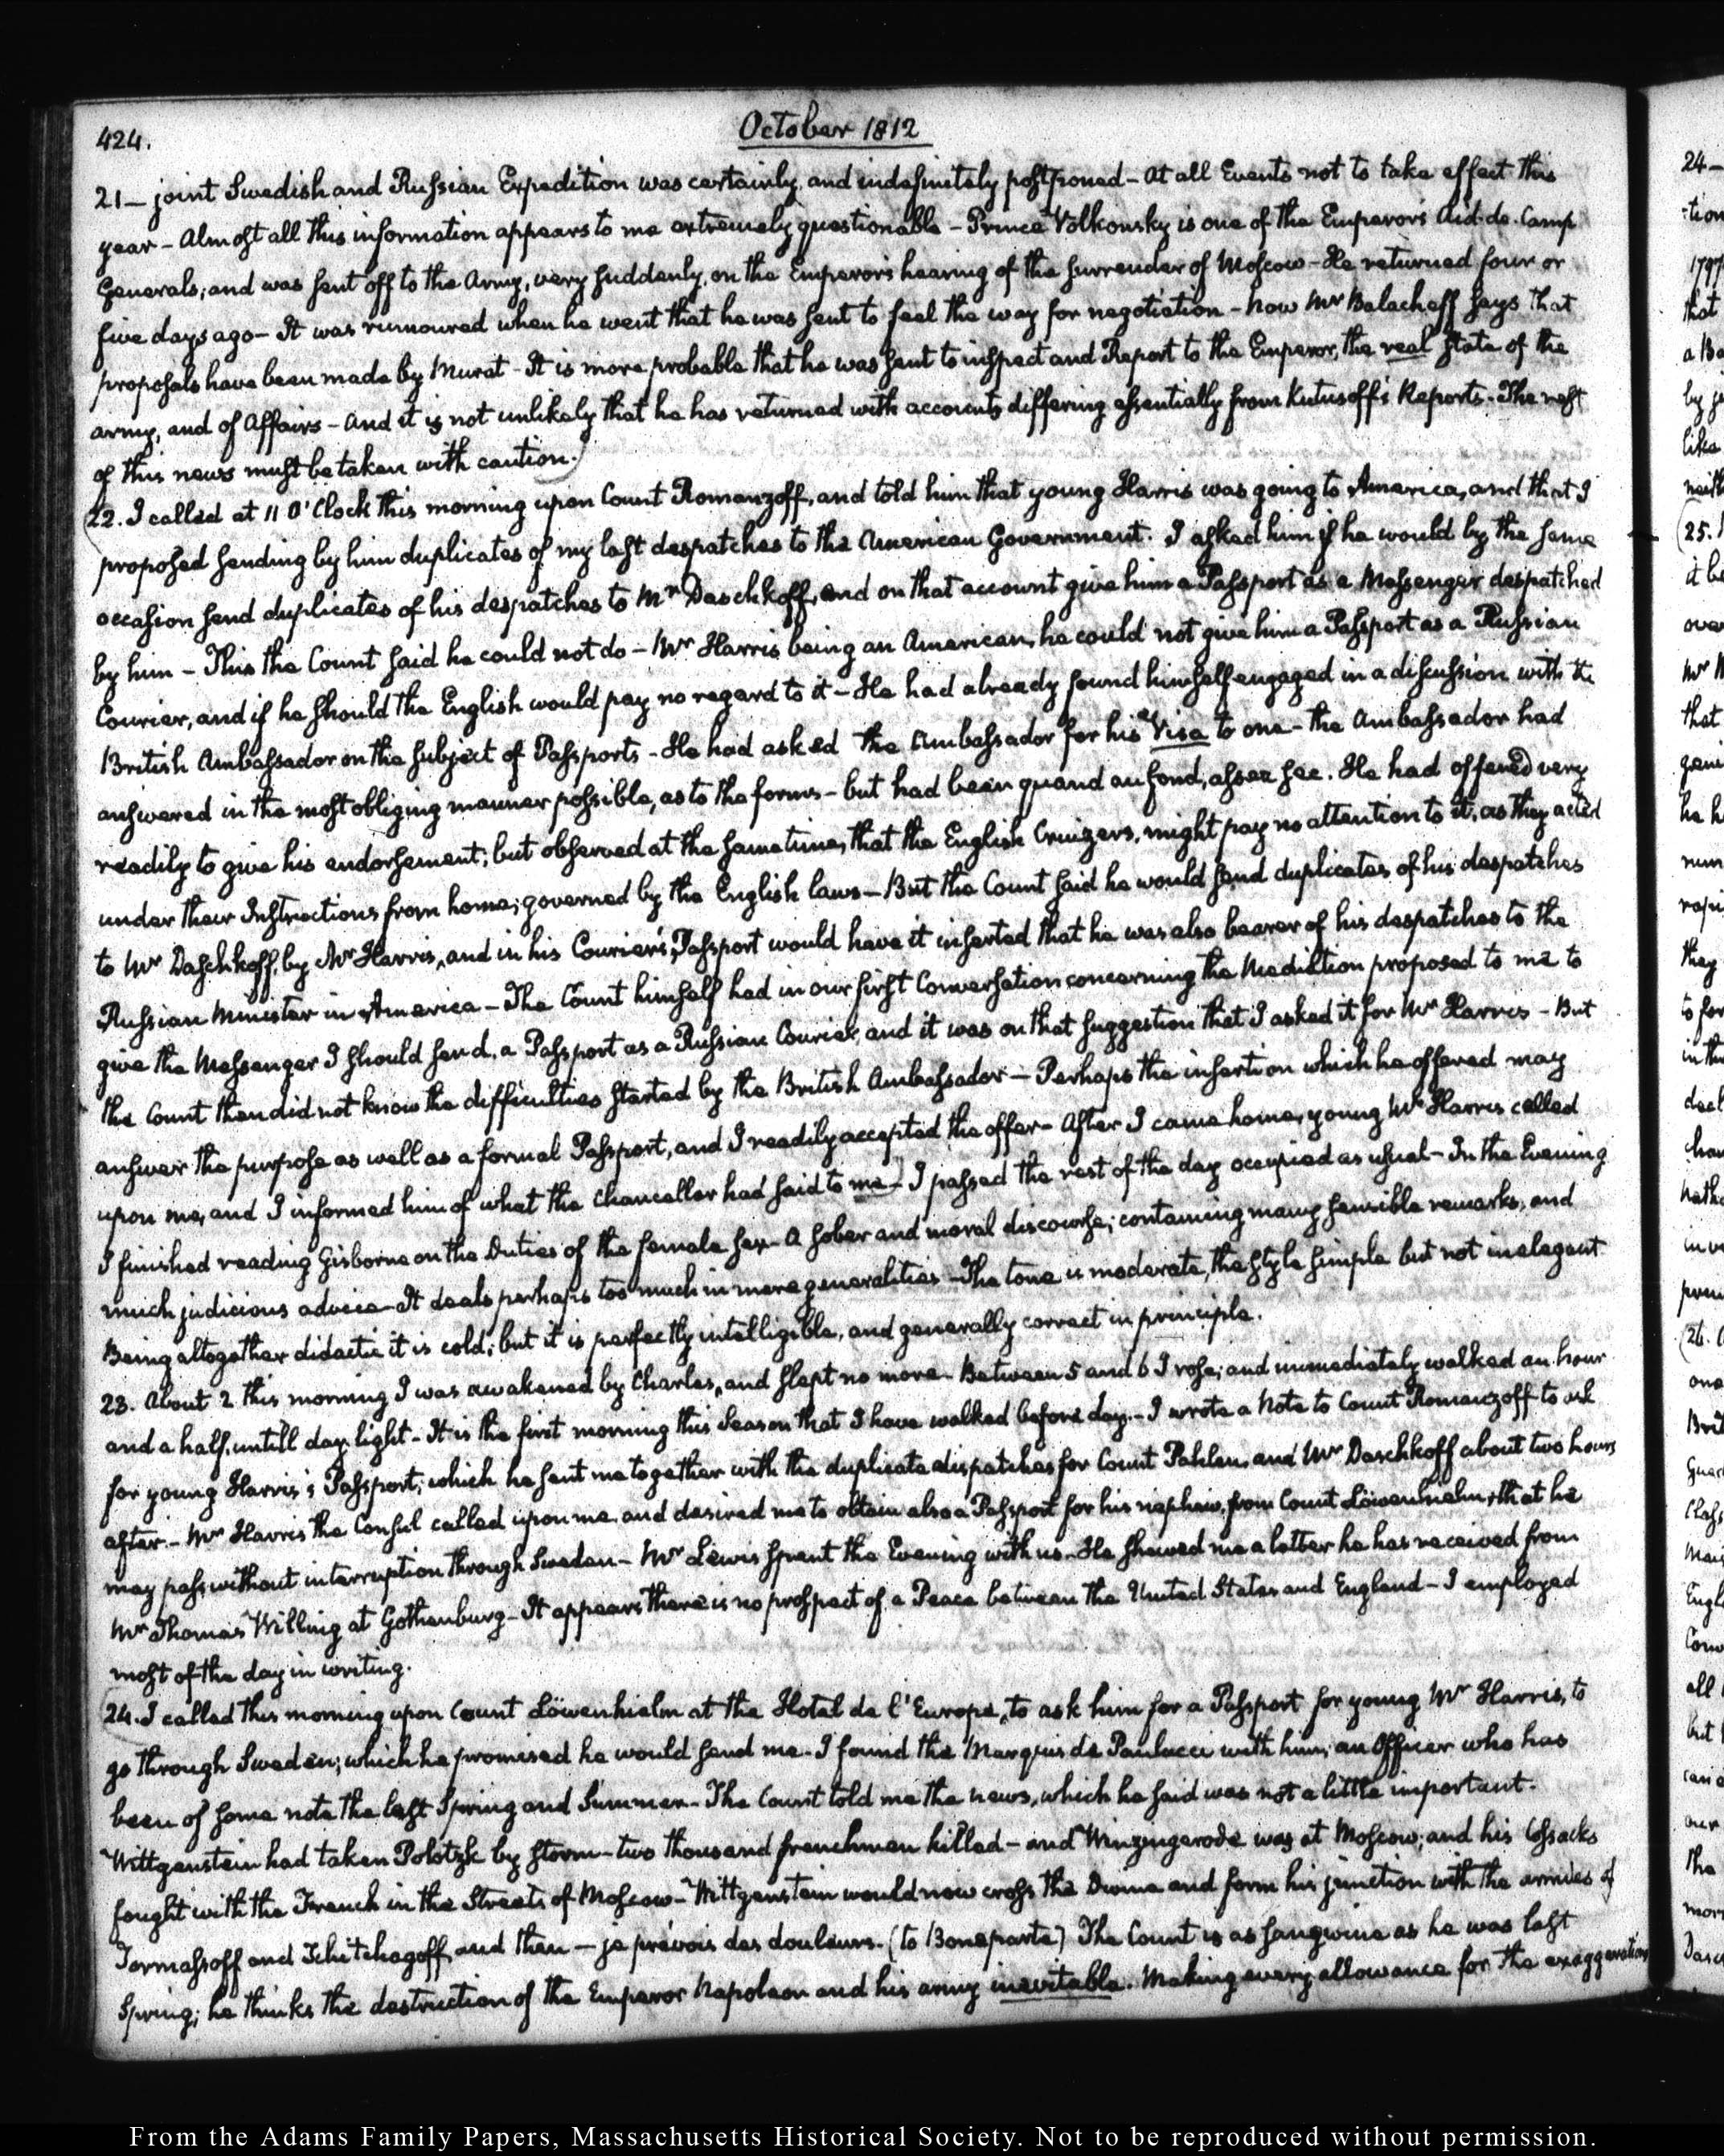 424.
October 1812
21— joint Swedish and Russian Expedition was certainly, and indefinitely postponed – At all Events not to take effect this
year – Almost all this information appears to me extremely questionable – Prince Volkonsky is one of the Emperor's Aid-de-Camp
Generals; and was sent off to the Army, very suddenly, on the Emperor's hearing of the surrender of Moscow – He returned four or
five days ago – It was rumoured when he went that he was sent to feel the way for negotiation – Now Mr Balacheff says that
proposals have been made by Murat – It is more probable that he was sent to inspect and Report to the Emperor, the real state of the
army, and of Affairs – And it is not unlikely that he has returned with accounts differing essentially from Kutusoff's Reports. The rest
of this news must be taken with caution.
22. I called at 11 O'Clock this morning upon Count Romanzoff, and told him that young Harris was going to America, and that I
proposed sending by him duplicates of my last despatches to the American Government. I asked him if he would by the same
occasion send duplicates of his despatches to Mr Daschkoff, and on that account give him a Passport as a Messenger despatched
by him – This the Count said he could not do – Mr Harris being an American, he could not give him a Passport as a Russian
Courier, and if he should the English would pay no regard to it – He had already found himself engaged in a discussion with the
British Ambassador on the subject of Passports – He had asked the Ambassador for his Visa to one – the Ambassador had
answered in the most obliging manner possible, as to the forms – but had been quand au fond, assez sec. He had offered very
readily to give his endorsement; but observed at the same time, that the English Cruizers, might pay no attention to it, as they acted
under their Instructions from home, governed by the English laws – But the Count said he would send duplicates of his despatches
to Mr Daschkoff, by Mr Harris, and in his Courier's Passport would have it inserted that he was also bearer of his despatches to the
Russian Minister in America – The Count himself had in our first Conversation concerning the Mediation proposed to me to
give the Messenger I should send, a Passport as a Russian Courier, and it was on that suggestion that I asked it for Mr Harris – But
the Count then did not know the difficulties started by the British Ambassador – Perhaps the insertion which he offered may
answer the purpose as well as a formal Passport, and I readily accepted the offer – After I came home, young Mr Harris called
upon me, and I informed him of what the Chancellor had said to me – I passed the rest of the day occupied as usual – In the Evening
I finished reading Gisborne on the Duties of the female sex – A sober and moral discourse; containing many sensible remarks, and
much judicious advice – It deals perhaps too much in mere generalities – The tone is moderate, the style simple but not inelegant
Being altogether didactic it is cold; but it is perfectly intelligible, and generally correct in principle.
23. About 2 this morning I was awakened by Charles, and slept no more – Between 5 and 6 I rose; and immediately walked an hour
and a half, untill day light – It is the first morning this Season that I have walked before day. – I wrote a Note to Count Romanzoff to ask
for young Harris's Passport; which he sent me together with the duplicate dispatches for Count Pahlen, and Mr Daschkoff about two hours
after. – Mr Harris the Consul called upon me, and desired me to obtain also a Passport for his nephew, from Count Löwenhielm, that he
may pass without interruption through Sweden – Mr Lewis spent the Evening with us. He shewed me a letter he has received from
Mr Thomas Willing at Gothenburg – It appears there is no prospect of a Peace between the United States and England – I employed
most of the day in writing.
24. I called this morning upon Count Löwenhielm at the Hotel de l'Europe, to ask him for a Passport for young Mr Harris, to
go through Sweden; which he promised he would send me. I found the Marquis de Paulucci with him; an Officer who has
been of some note the last Spring and Summer – The Count told me the news, which he said was not a little important.
Wittgenstein had taken Polotzk by storm – two thousand frenchmen killed – and Winzingerode was at Moscow; and his Cossacks
fought with the French in the Streets of Moscow – Wittgenstein would now cross the Dwina and form his junction with the armies of
Tormassoff and Tchitchagoff, and then – je prévois des douleurs. (to Bonaparte) The Count is as sanguine as he was last
Spring; he thinks the destruction of the Emperor Napoleon and his army inevitable. Making every allowance for the exaggeration
24—
1797
that
by
like
25.
over
Mr
that
he h
they
to for
in the
26.
one
Brit
Engl
all
but
our
The
From the Adams Family Papers, Massachusetts Historical Society. Not to be reproduced without permission.